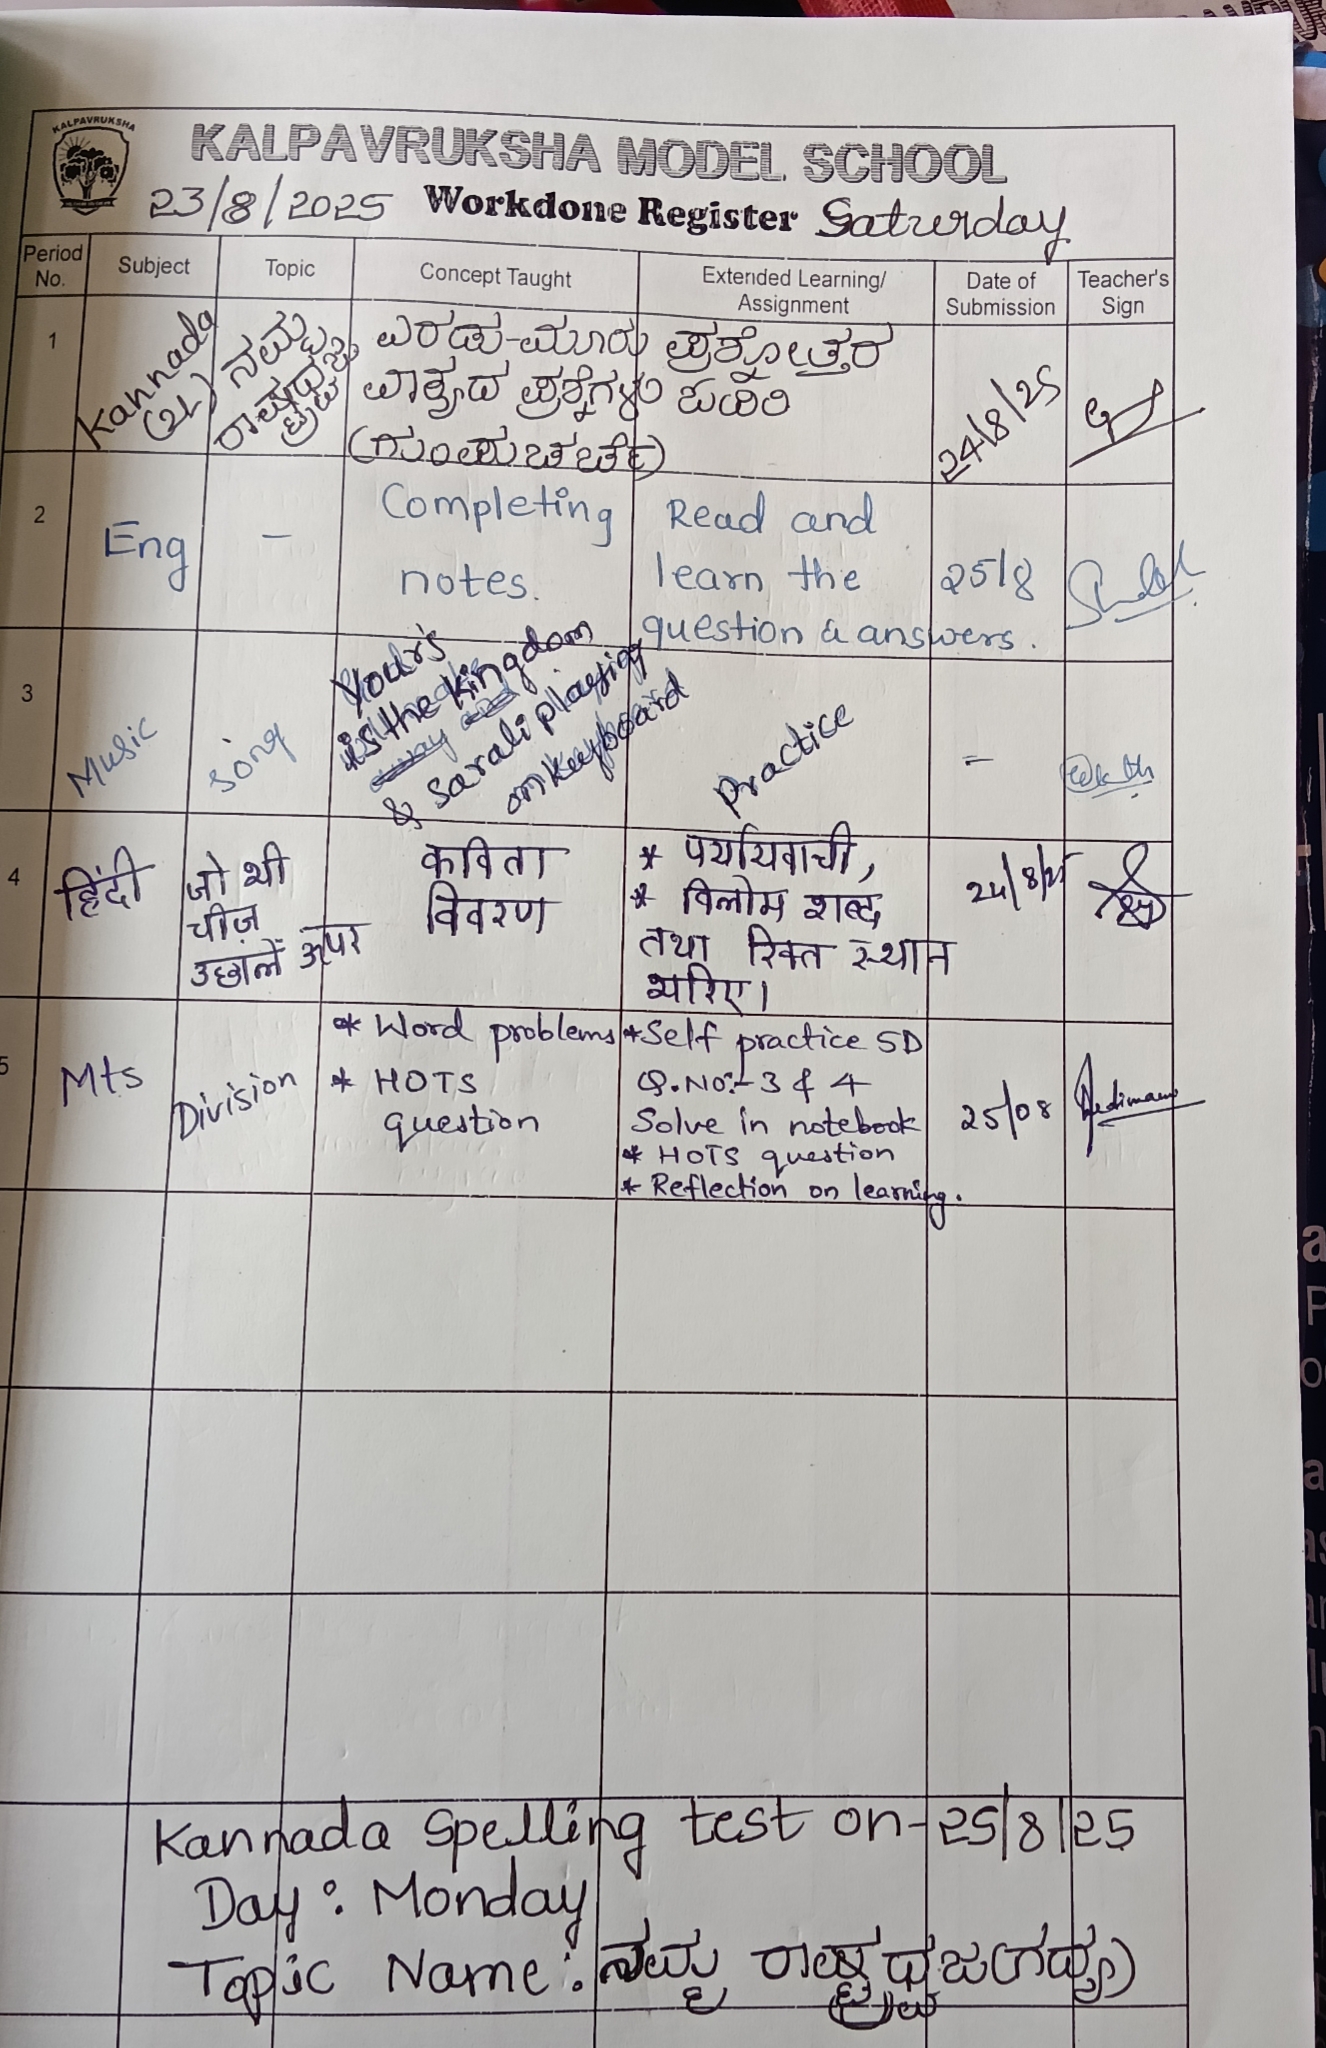 KALPAVRUKSHA
KALPAVRUKSHA MODEL SCHOOL
23/8/2025 Workdone Register Saturday
Period No. Subject Topic Concept Taught Extended Learning/ Assignment Date of Submission Teacher's Sign
1 Kannada (2L) ನಮ್ಮ ರಾಷ್ಟ್ರಧ್ವಜ ಎರಡು-ಮೂರು ಪ್ರಶ್ನೋತ್ತರ
ವಾಕ್ಯದ ಪ್ರಶ್ನೆಗಳು ಓದಿರಿ 24/8/25
(ಗುಂಪು ಚರ್ಚೆ)
2 Eng - Completing notes. Read and
learn the 25/8
question & answers.
3 Music song Your's
is the kingdom
& sarali playing
on keyboard
Practice -
4 हिंदी जो भी चीज़ उछालें ऊपर कविता विवरण * पर्यायवाची, 24/8/25
* विलोम शब्द
तथा रिक्त स्थान
भरिए।
5 Mts Division * Word problems * Self practice 5D
* HOTS question Q.No:- 3 & 4
Solve in notebook 25/08
* HOTS question
* Reflection on learning.
Kannada Spelling test on - 25/8/25
Day : Monday
Topic Name : ನಮ್ಮ ರಾಷ್ಟ್ರಧ್ವಜ(ಗದ್ಯ)